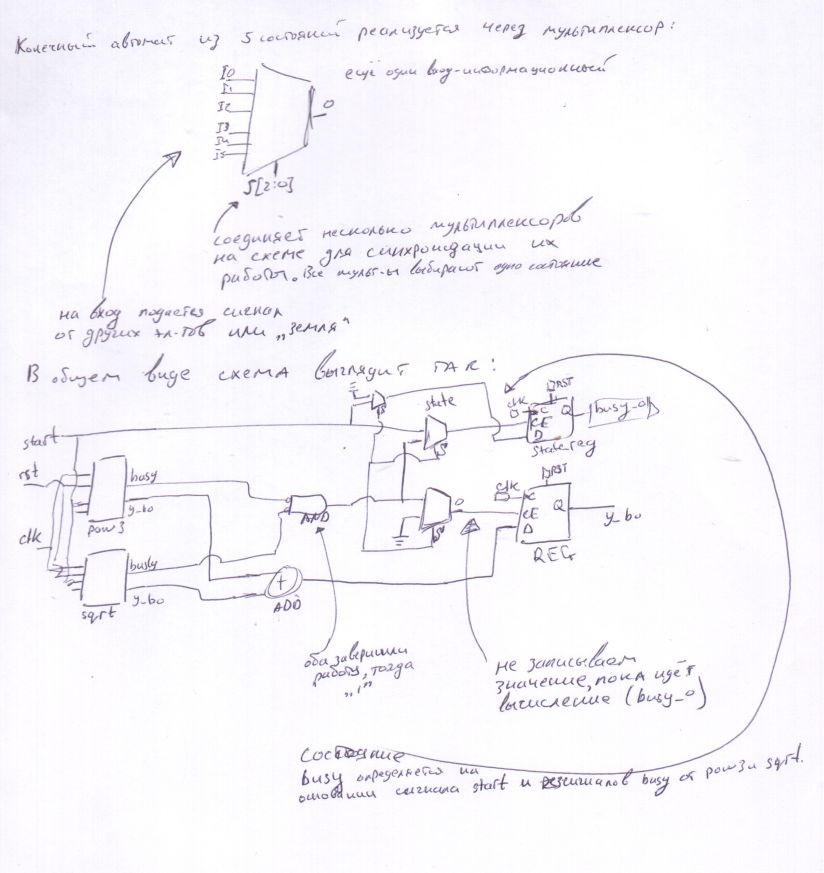 Конечный автомат из 5 состояний реализуется через мультиплексор:
ещё один вход-информационный
I0
I1
I2
I3
I4
I5
0
S[2:0]
соединяет несколько мультиплексоров
на схеме для синхронизации их
работы. Все мульт-ы выбирают одно состояние
на вход подаётся сигнал
от других эл-тов или „земля“
В общем виде схема выглядит так:
start
rst
clk
busy
y_bo
pow3
busy
y_bo
sqrt
AND
ADD
state
clk
RST
C
CE
D
Q
busy_o
state reg
clk
RST
C
CE
D
Q
y_bo
REG
0
оба завершили
работу, тогда
„1“
не записываем
значение, пока идёт
вычисление (busy_o)
Состояние
busy определяется на
основании сигнала start и сигналов busy от pow3 и sqrt.